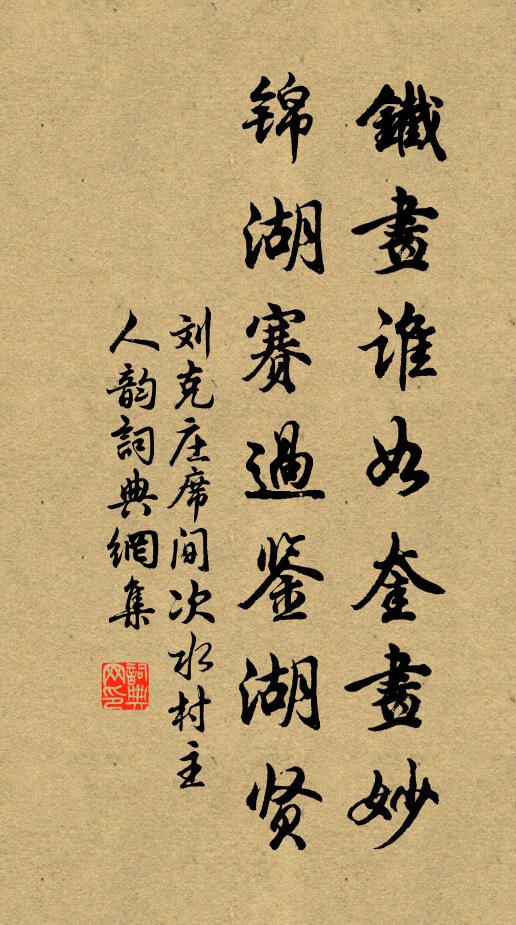 鐵畫誰如奎畫妙
锦湖賽過鉴湖贤
刘克庄席间次水村主
人韵詞典網集
詞典
网印